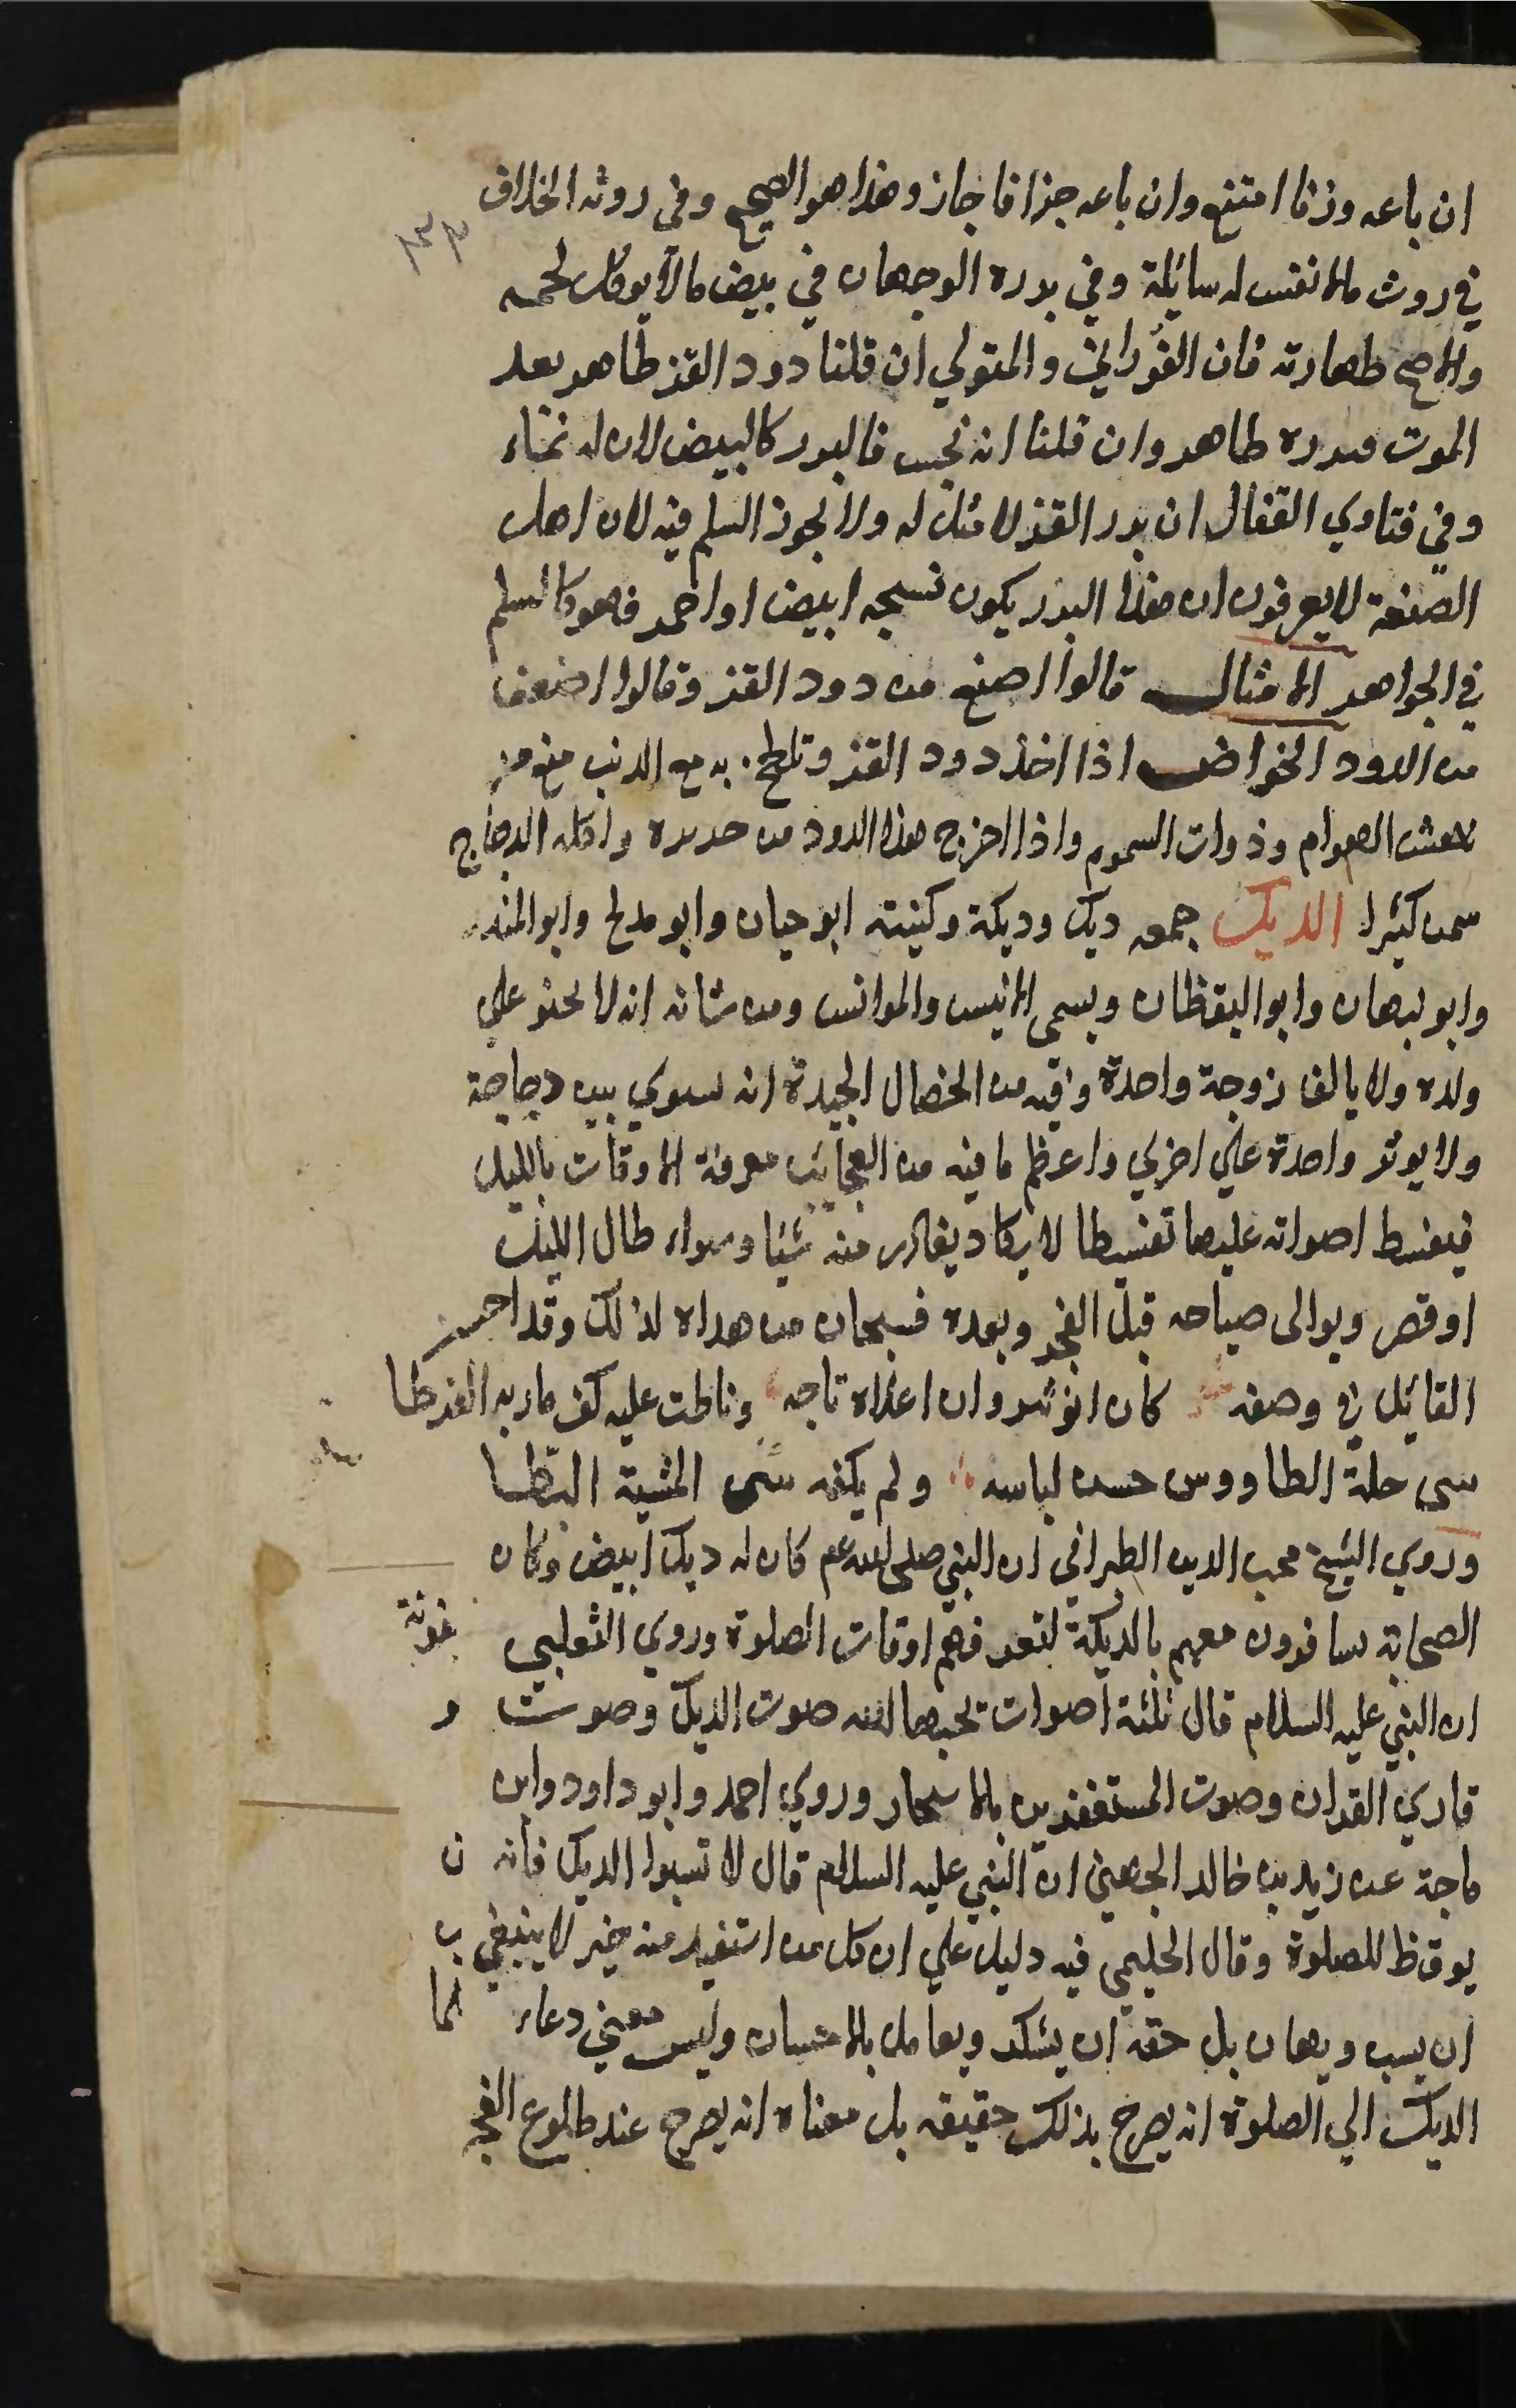 ان باعه وزنا امتنع وان باعه جزافا جاز وهذا هو الصحيح وفي روثه الخلاف
في روث مالا نفس له سائلة وفي بزره الوجهان في بيض مالا يوكل لحمه
والاصح طهارته فان الفوراني والمتولي ان قلنا دود القز طاهر بعد
الموت فبزره طاهر وان قلنا انه نجس فالبزر كالبيض لان له نماء
وفي فتاوي القفال ان بزر القز لا مثل له ولا يجوز السلم فيه لان اهل
الصنعة لا يعرفون ان هذا البزر يكون نسجه ابيض او احمر فهو كالسلم
في الجواهر الامثال قالوا اصنع من دود القز وقالوا اضعف
من الدود الخواص اذا اخذ دود القز وتلطخ به مع الزيت منع من
نهشت الهوام وذوات السموم واذا اخرج هذا الدود من حريره واكله الدجاج
سمن كثيرا الديك جمعه ديك وديكة وكنيته ابو حيان وابو مدلج وابو المنذر
وابو نبهان وابو اليقظان ويسمى الانيس والموانس ومن شانه انه لا يحنو علي
ولده ولا يالف زوجة واحدة وفيه من الخصال الجيدة انه يسوي بين دجاجة
ولا يوثر واحدة علي اخري واعظم ما فيه من العجائب معرفة الاوقات بالليل
فيقسط اصواته عليها تقسيطا لا يكاد يغادر منه شيئا وسواء طال الليل
او قصر ويوالى صياحه قبل الفجر وبعده فسبحان من هداه لذلك وقد احسن
القائل في وصفه كان انوشروان اعطاه تاجه وناطت عليه كف مارية القرطا
سبى حلة الطاووس حسن لباسه ولم يكفه حتى سبى المشية البطا
وروي الشيخ محب الدين الطبراني ان النبي صلى الله عم كان له ديك ابيض وكان
الصحابة يسافرون معهم بالديكة لتعرفهم اوقات الصلوة وروي الثعلبي
ان النبي عليه السلام قال ثلثة اصوات يحبها الله صوت الديك وصوت
قاري القران وصوت المستغفرين بالاسحار وروي احمد وابو داود وابن
ماجة عن زيد بن خالد الجهني ان النبي عليه السلام قال لا تسبوا الديك فانه
يوقظ للصلوة وقال الحليمي فيه دليل علي ان كل من استفيد منه خير لا ينبغي
ان يسب ويهان بل حقه ان يشكر ويعامل بالاحسان وليس معنى دعاء
الديك الي الصلوة انه يصرخ بذلك حقيقه بل معناه انه يصرخ عند طلوع الفجر